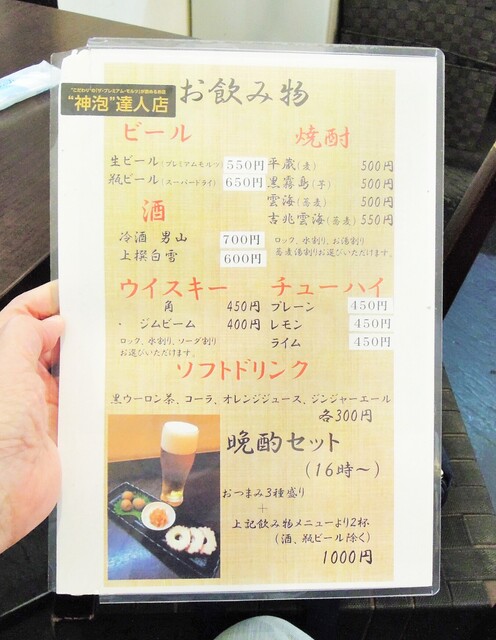 "こだわり"の「ザ・プレミアム・モルツ」が飲めるお店
"神泡"達人店
お飲み物
ビール
生ビール(プレミアムモルツ) 550円
瓶ビール(スーパードライ) 650円
酒
冷酒 男山 700円
上撰白雪 600円
焼酎
平蔵(麦) 500円
黒霧島(芋) 500円
雲海(蕎麦) 500円
吉兆雲海(蕎麦) 550円
ロック、水割り、お湯割り
蕎麦湯割りお選びいただけます。
ウイスキー
角 450円
・ジムビーム 400円
ロック、水割り、ソーダ割り
お選びいただけます。
チューハイ
プレーン 450円
レモン 450円
ライム 450円
ソフトドリンク
黒ウーロン茶、コーラ、オレンジジュース、ジンジャーエール
各300円
晩酌セット
(16時〜)
おつまみ3種盛り
+
上記飲み物メニューより2杯
(酒、瓶ビール除く)
1000円